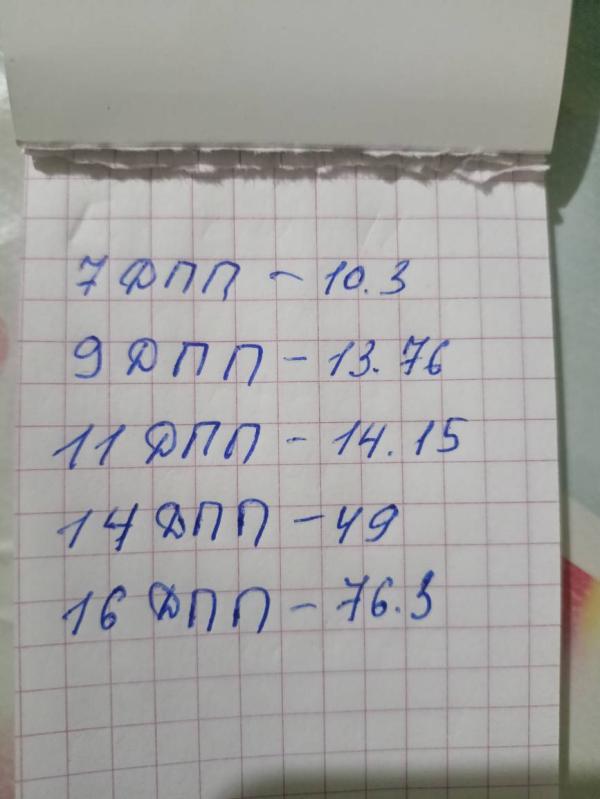 7 ДПП - 10.3
9 ДПП - 13.76
11 ДПП - 14.15
14 ДПП - 49
16 ДПП - 76.3